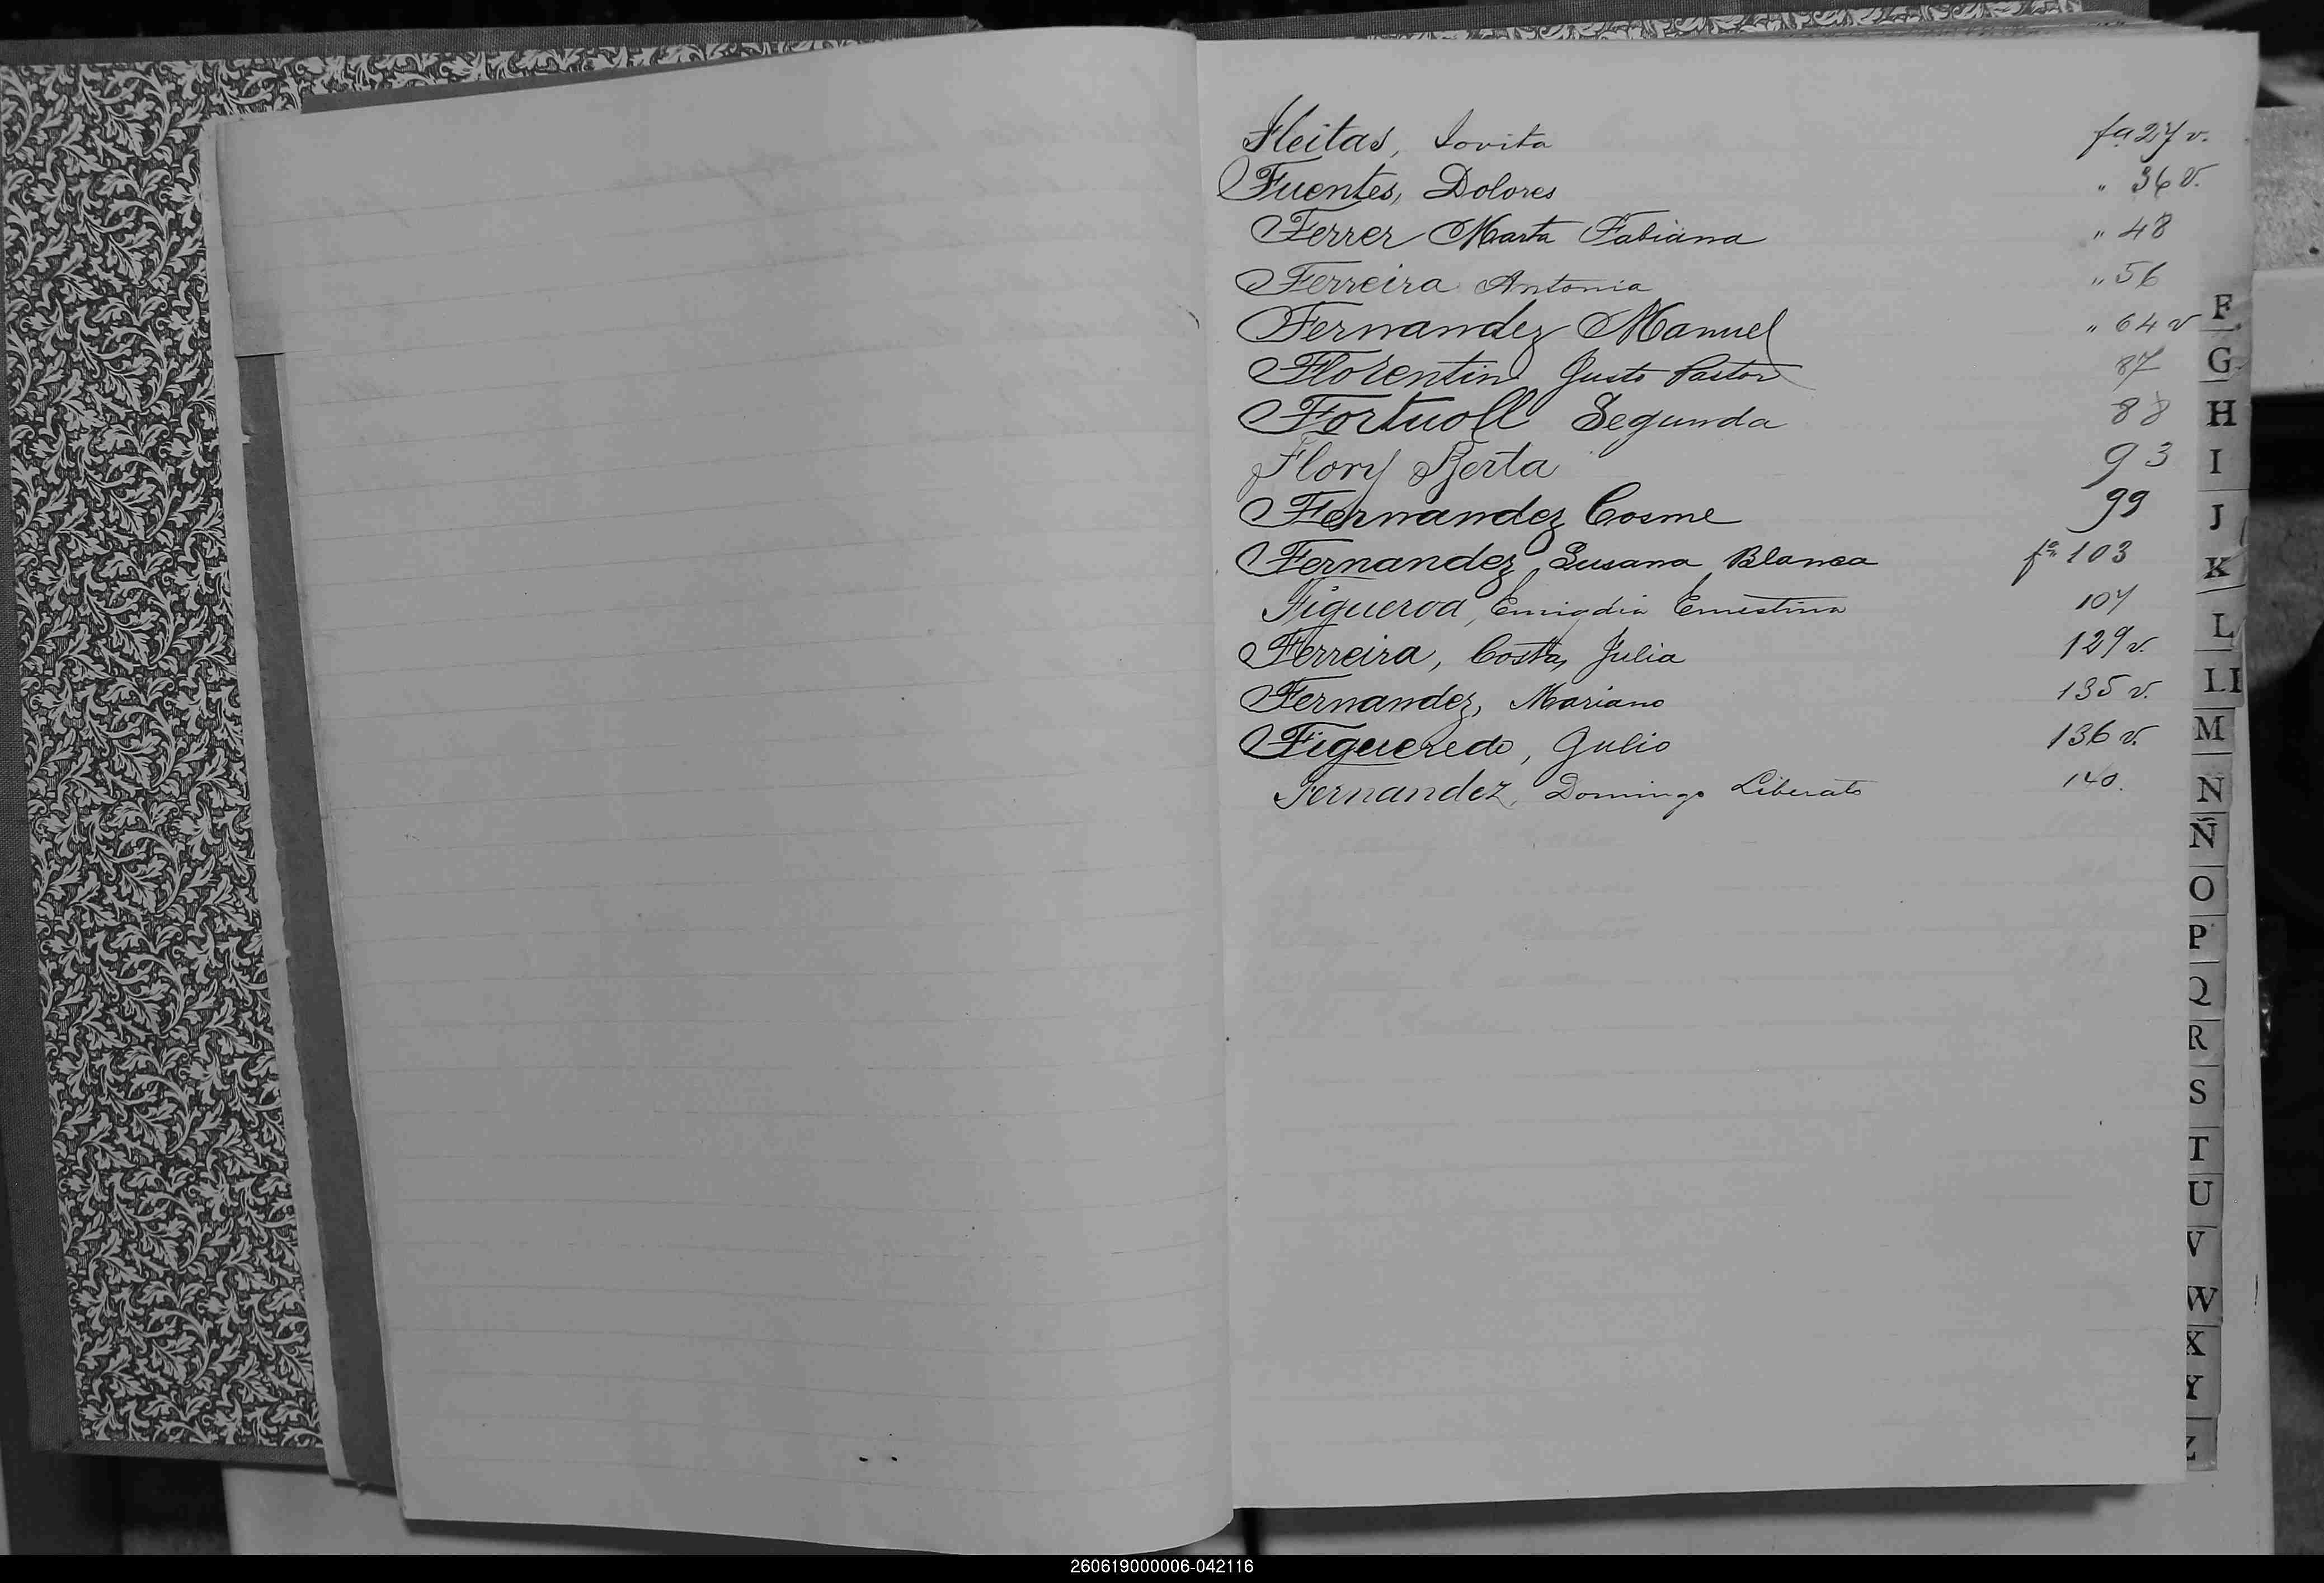 Fleitas, Jovita fº 27 v.
Fuentes, Dolores " 36 v.
Ferrer Marta Fabiana " 48
Ferreira Antonia " 56
Fernandez Manuel " 64 v
Florentin Justo Pastor 87
Fortuoll Segunda 88
Flory Berta 93
Fernandez Cosme 99
Fernandez, Susana Blanca fº 103
Figueroa, Emigdia Ernestina 107
Ferreira, Costa, Julia 129 v.
Fernandez, Mariano 135 v.
Figueredo, Julio 136 v.
Fernandez, Domingo Liberato 140.
F
G
H
I
J
K
L
LI
M
N
Ñ
O
P
Q
R
S
T
U
V
W
X
Y
Z
260619000006-042116